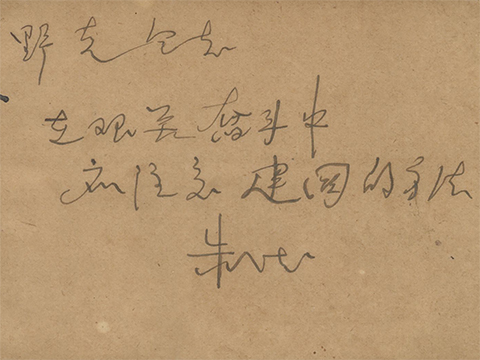 野克同志
在艰苦奋斗中
应注意建国的方法
朱德